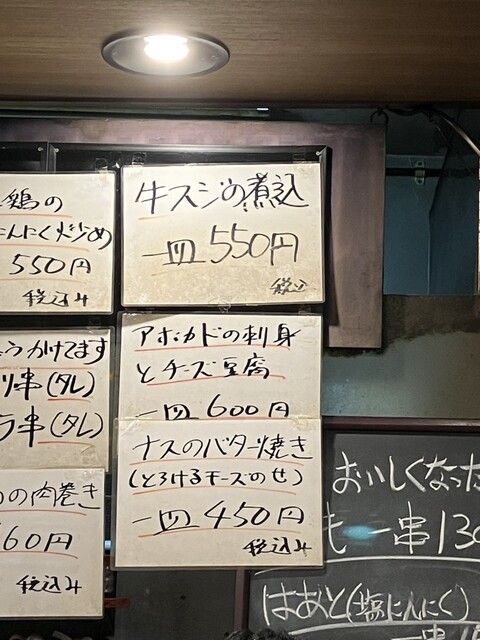 鶏の
にんにく炒め
550円
税込み
牛スジの煮込
一皿 550円
税込
アボカドの刺身
とチーズ豆腐
一皿 600円
ナスのバター焼き
(とろけるチーズのせ)
一皿 450円
税込み
かけてます
串(タレ)
ラ串(タレ)
の肉巻き
60円
税込み
おいしくなった
も 一串130
はあと(塩にんにく)